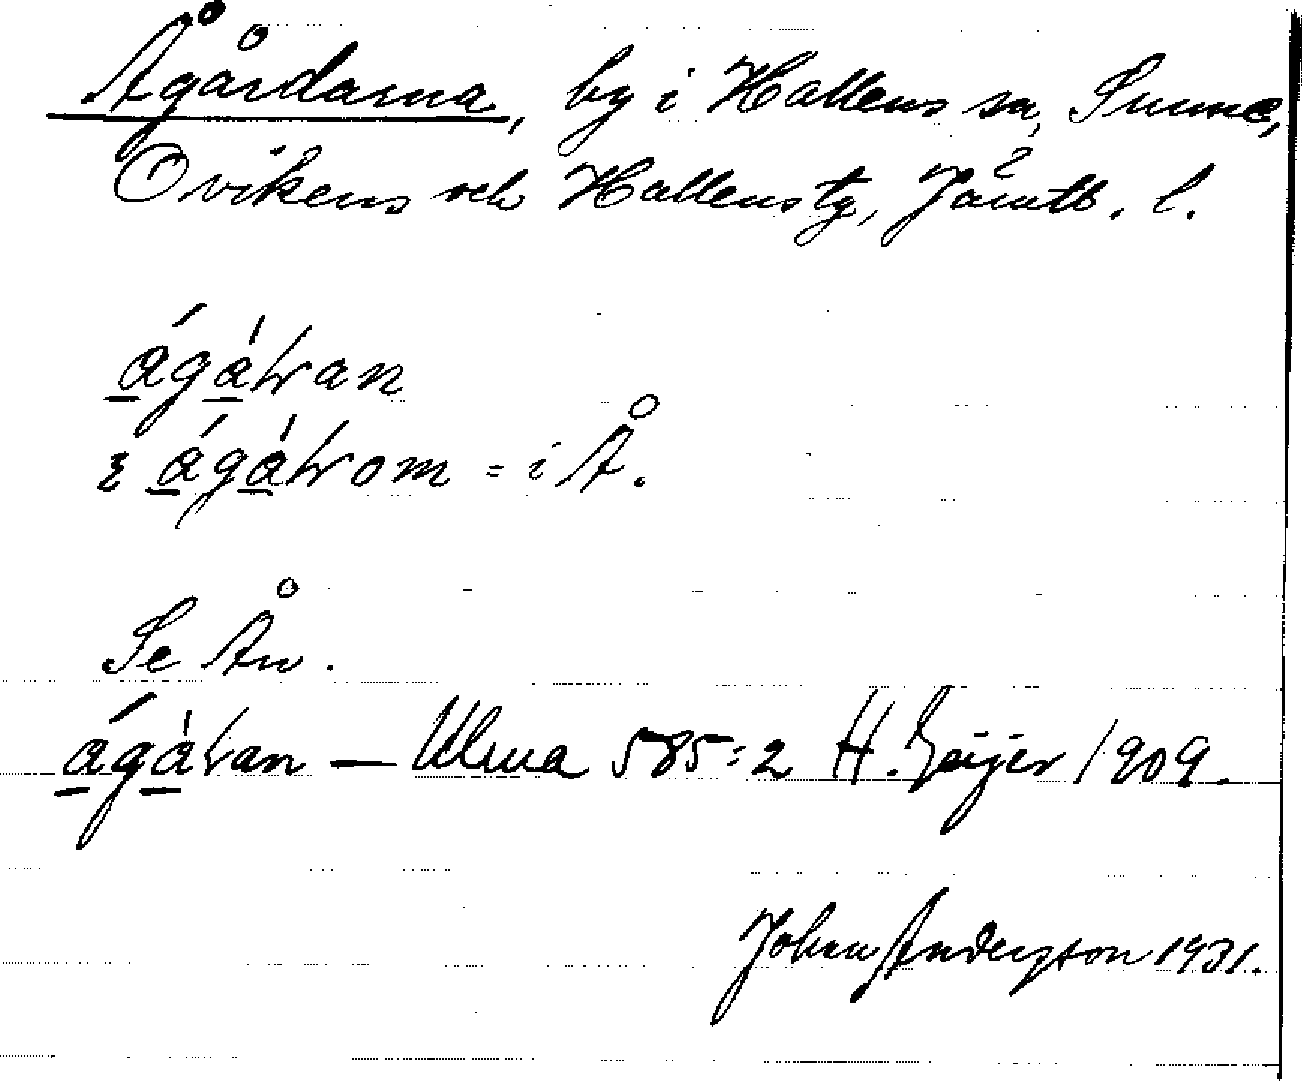 Ågårdarna, by i Hallens sn, Sunne,
Ovikens och Hallens tg, Jämtl. l.
ágàɫran
ɩ ágàɫrom = i Å.
Se Ån.
ágàɫran — Ulma 585:2 H. Geijer 1909.
Johan Anderzson 1931.